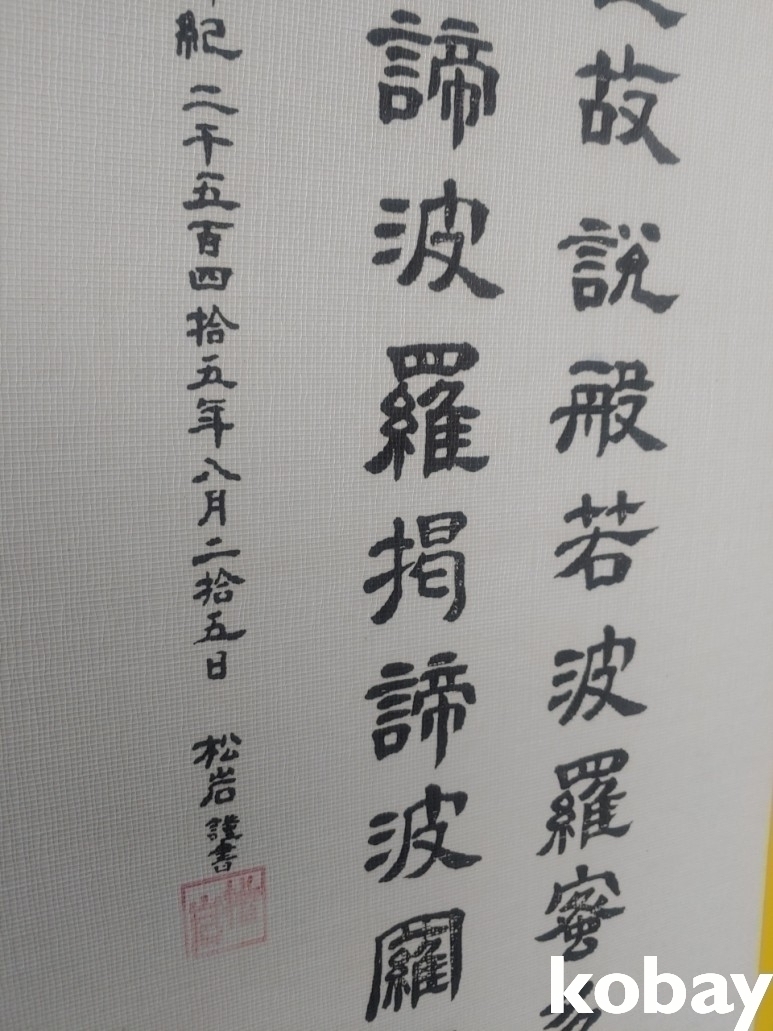 故說般若波羅蜜
諦波羅揭諦波羅
紀二千五百四拾五年八月二拾五日 松岩謹書
kobay